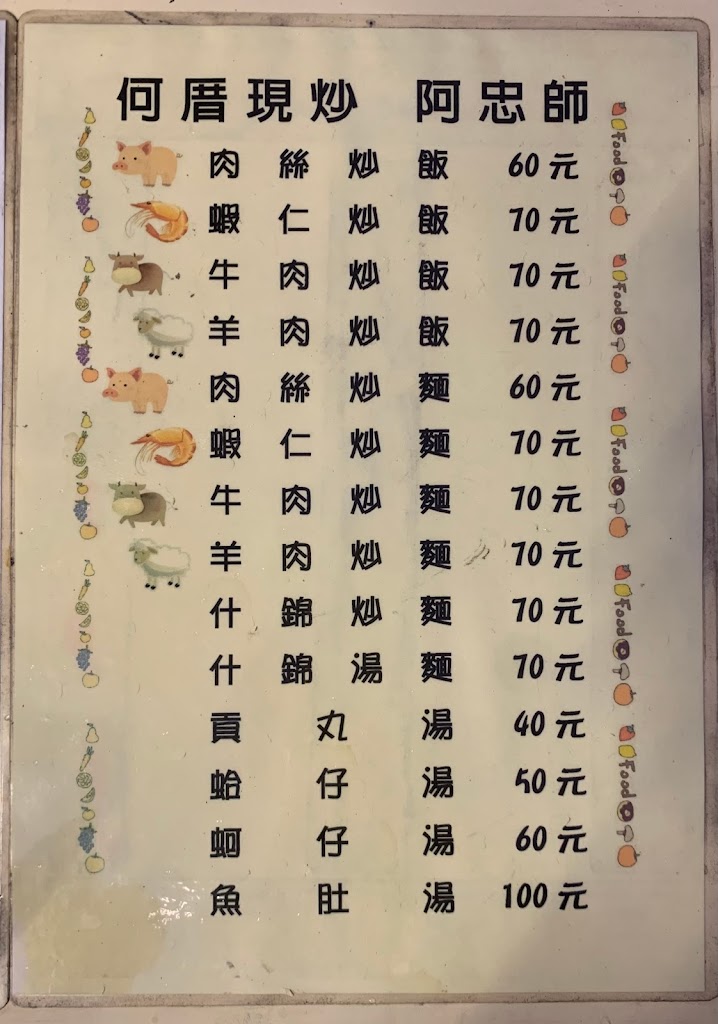 何厝現炒 阿忠師
肉絲炒飯 60元
蝦仁炒飯 70元
牛肉炒飯 70元
羊肉炒飯 70元
肉絲炒麵 60元
蝦仁炒麵 70元
牛肉炒麵 70元
羊肉炒麵 70元
什錦炒麵 70元
什錦湯麵 70元
貢丸湯 40元
蛤仔湯 50元
蚵仔湯 60元
魚肚湯 100元
Food
Food
Food
Food
Food